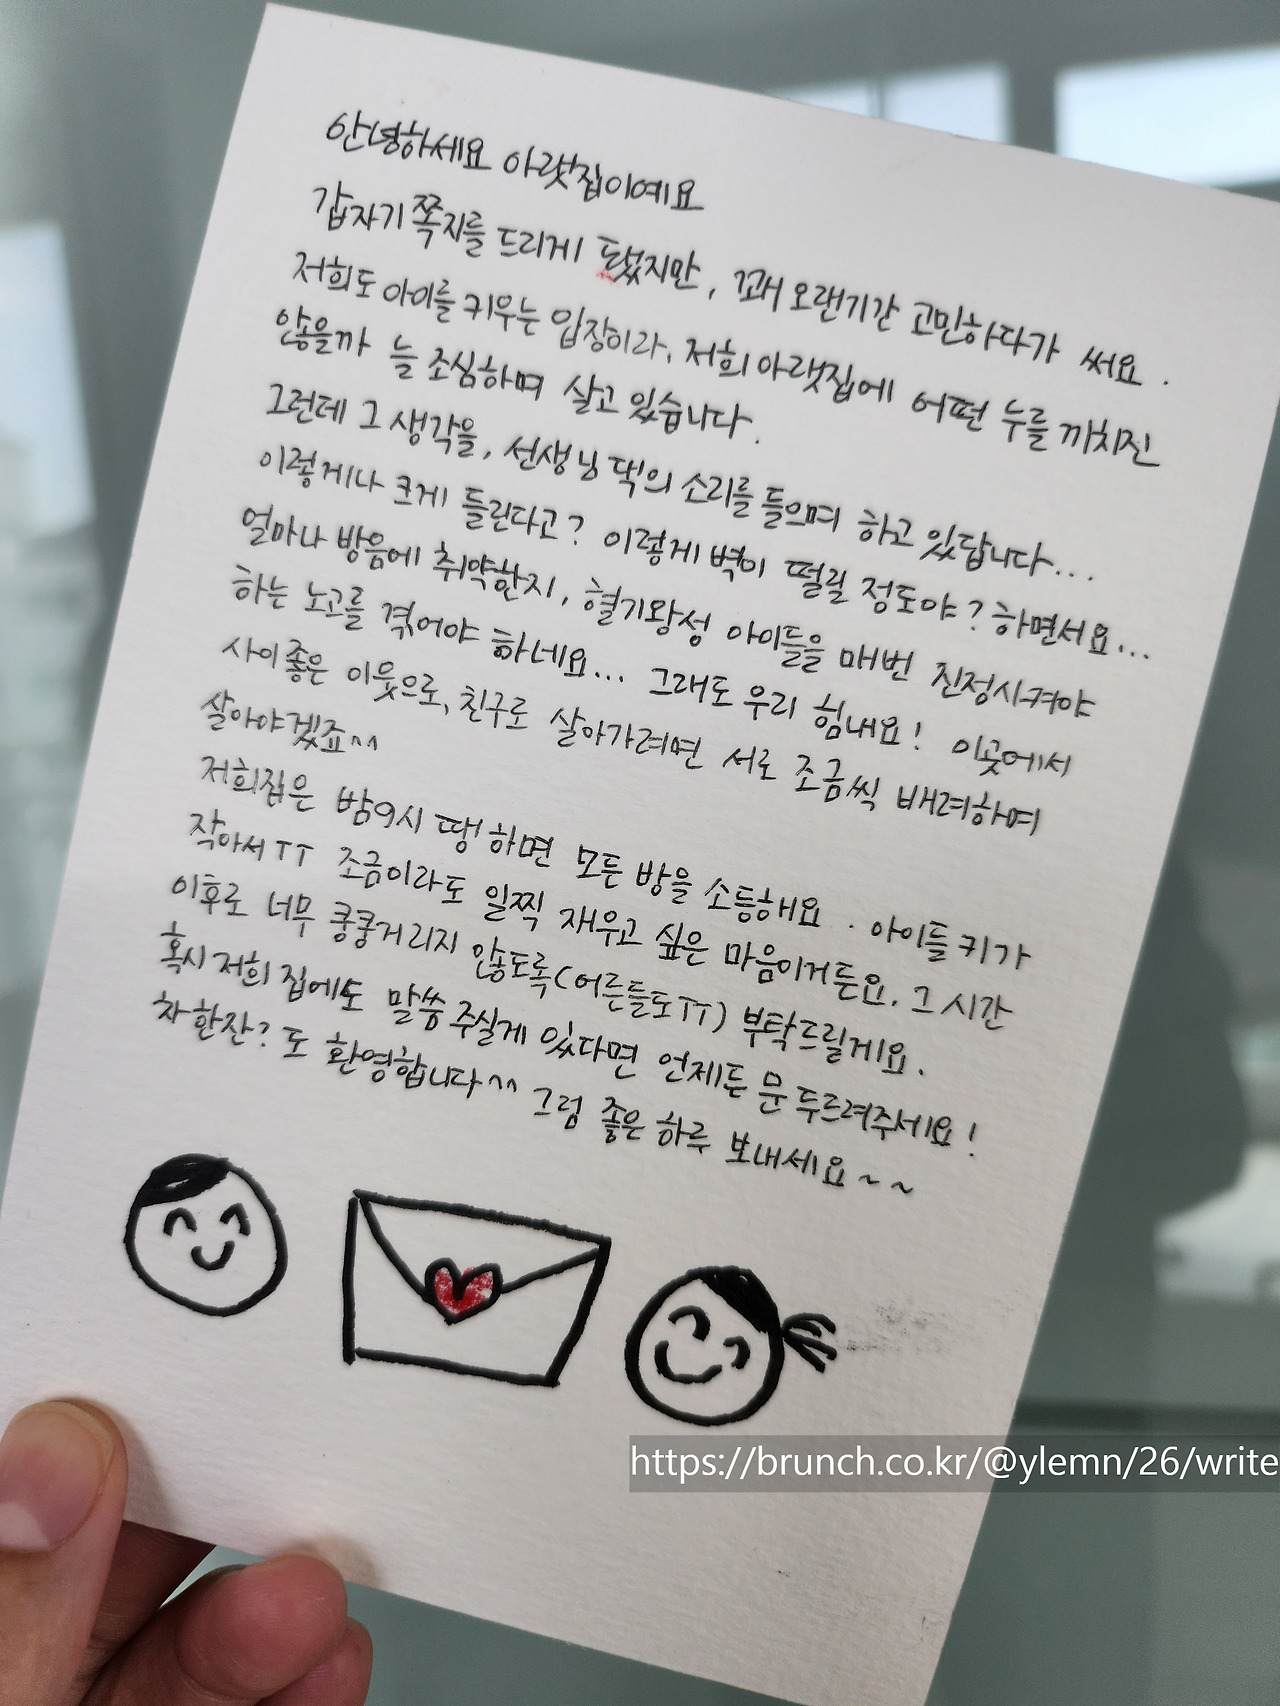 안녕하세요 아랫집이예요
갑자기 쪽지를 드리게 됐지만, 꽤 오랜기간 고민하다가 써요.
저희도 아이를 키우는 입장이라, 저희 아랫집에 어떤 누를 끼치진
않을까 늘 조심하며 살고 있습니다.
그런데 그 생각을, 선생님 댁의 소리를 들으며 하고 있답니다...
이렇게나 크게 들린다고? 이렇게 벽이 떨릴 정도야? 하면서요...
얼마나 방음에 취약한지, 혈기왕성 아이들을 매번 진정시켜야
하는 노고를 겪어야 하네요... 그래도 우리 힘내요! 이곳에서
사이좋은 이웃으로, 친구로 살아가려면 서로 조금씩 배려하며
살아야겠죠^^
저희집은 밤9시 땡!하면 모든 방을 소등해요. 아이들 키가
작아서TT 조금이라도 일찍 재우고 싶은 마음이거든요. 그 시간
이후로 너무 쿵쿵거리지 않도록(어른들도TT) 부탁드릴게요.
혹시 저희 집에도 말씀 주실게 있다면 언제든 문 두드려주세요!
차 한잔? 도 환영합니다^^ 그럼 좋은 하루 보내세요~~
https://brunch.co.kr/@ylemn/26/write